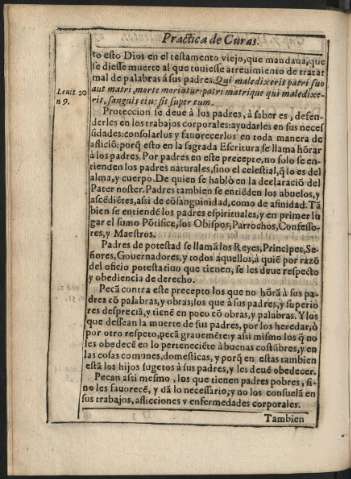 Practica de Curas.
to esto Dios en el testamento viejo, que mandaua, que
se diesse muerte al que touiesse atreuimiento de tratar
mal de palabras à sus padres. Qui maledixerit patri suo
aut matri, morte moriatur: patri matrique qui maledixe-
rit, sanguis eius sit super eum.
Leuit. 20
n 9.
Proteccion se deue à los padres, à saber es, defen-
derles en los trabajos corporales: ayudarles en sus neces
sidades: consolarlos y fauorecerlos en toda manera de
aflició: porq̃ esto en la sagrada Escritura, se llama hórar
à los padres. Por padres en este precepto, no solo se en-
tienden los padres naturales, sino el celestial, q̃ lo es del
alma, y cuerpo. De quien se habló en la declaració del
Pater noster. Padres tambien se entiẽden los abuelos, y
ascẽdiẽtes, assi de cõsanguinidad, como de afinidad. Tã
bien se entiendẽ los padres espirituales, y en primer lu
gar el sumo Põtifice, los Obispos, Parrochos, Confesso-
res, y Maestros.
Padres de potestad se llamã los Reyes, Principes, Se-
ñores, Gouernadores, y todos aquellos, à quiẽ por razõ
del oficio potestatiuo que tienen, se les deue respecto
y obediencia de derecho.
Pecã contra este precepto los que no hõrã à sus pa-
dres cõ palabras, y obras; los que à sus padres, y superio
res desprecià, y tienẽ en poco cõ obras, y palabras. Y los
que dessean la muerte de sus padres, por los heredar, ò
por otro respeto, pecã grauemẽte: y assi mismo los q̃ no
les obedecẽ en lo perteneciẽte à buenas costũbres, y en
las cosas comunes, domesticas, y porq̃ en estas tambien
está los hijos sugetos à sus padres, y les deuẽ obedecer.
Pecan assi mesmo, los que tienen padres pobres, si-
no les fauorecẽ, y dã lo necessario, y no los consuelã en
sus trabajos, aflicciones y enfermedades corporales.
Tambien